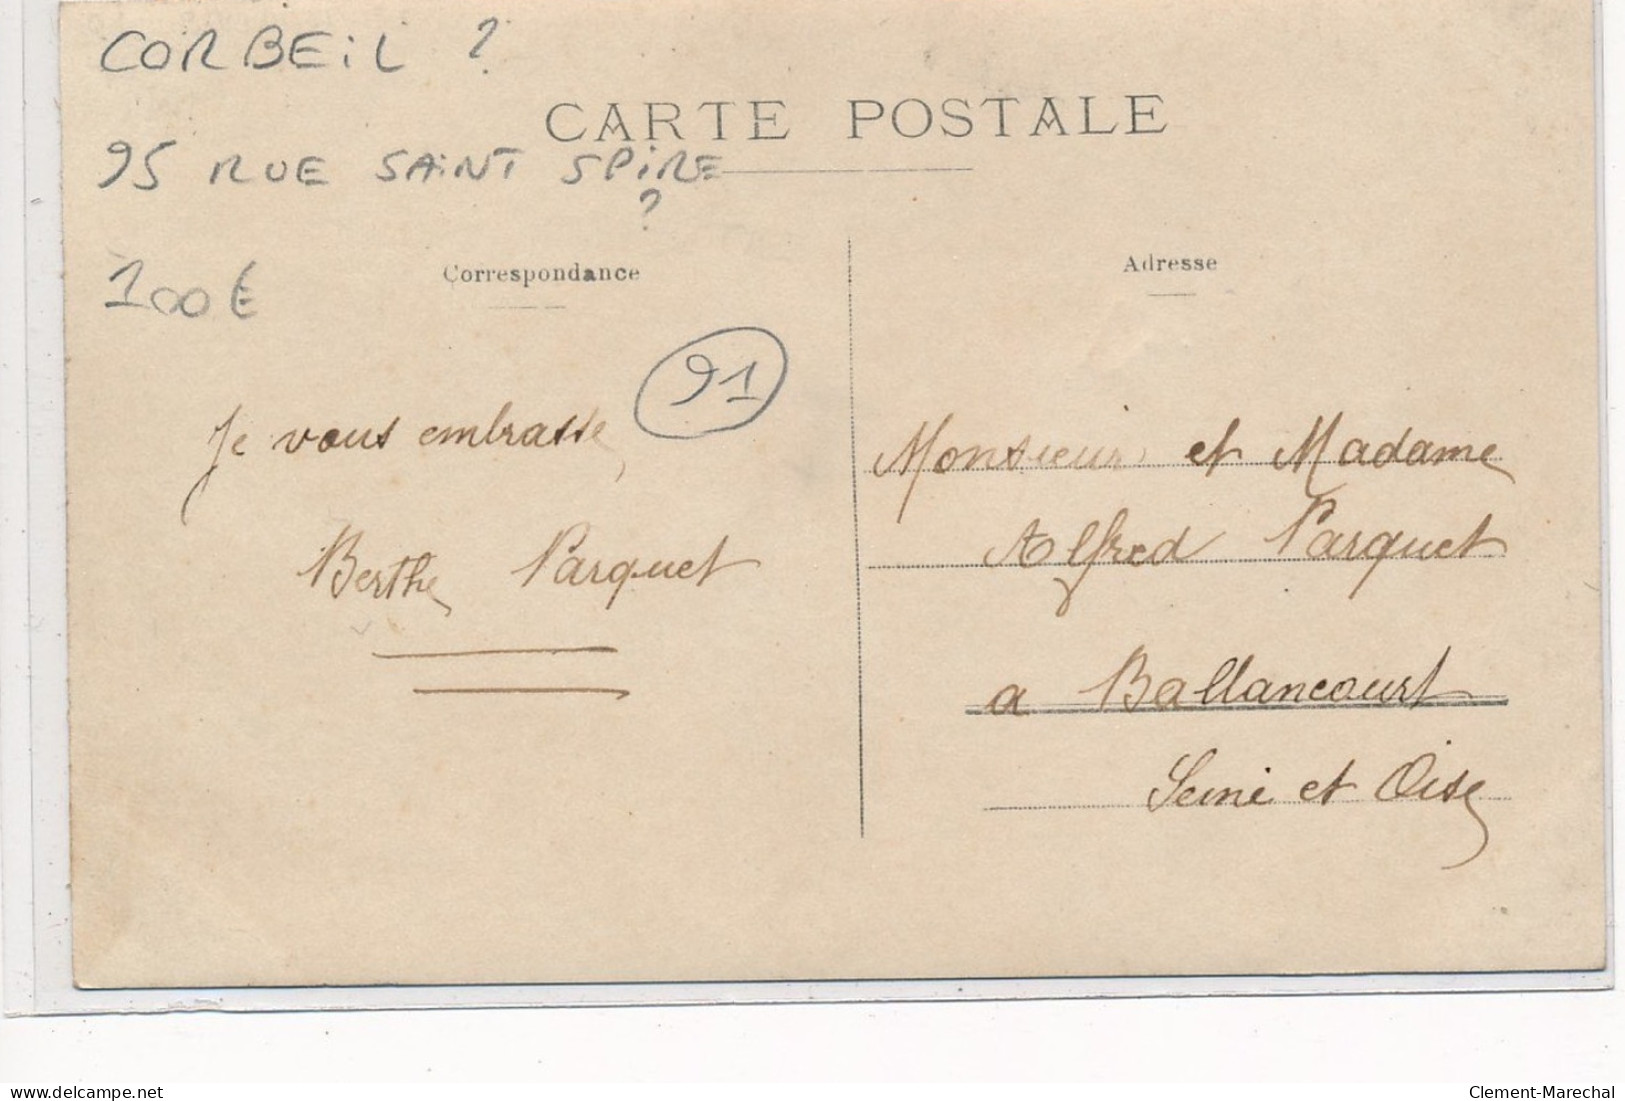 CORBEIL ?
CARTE POSTALE
95 RUE SAINT SPIRE
?
Correspondance
Adresse
100€
91
Je vous embrasse
Berthe Parquet
Monsieur et Madame
Alfred Parquet
a Ballancourt
Seine et Oise
www.delcampe.net
Clement-Marechal